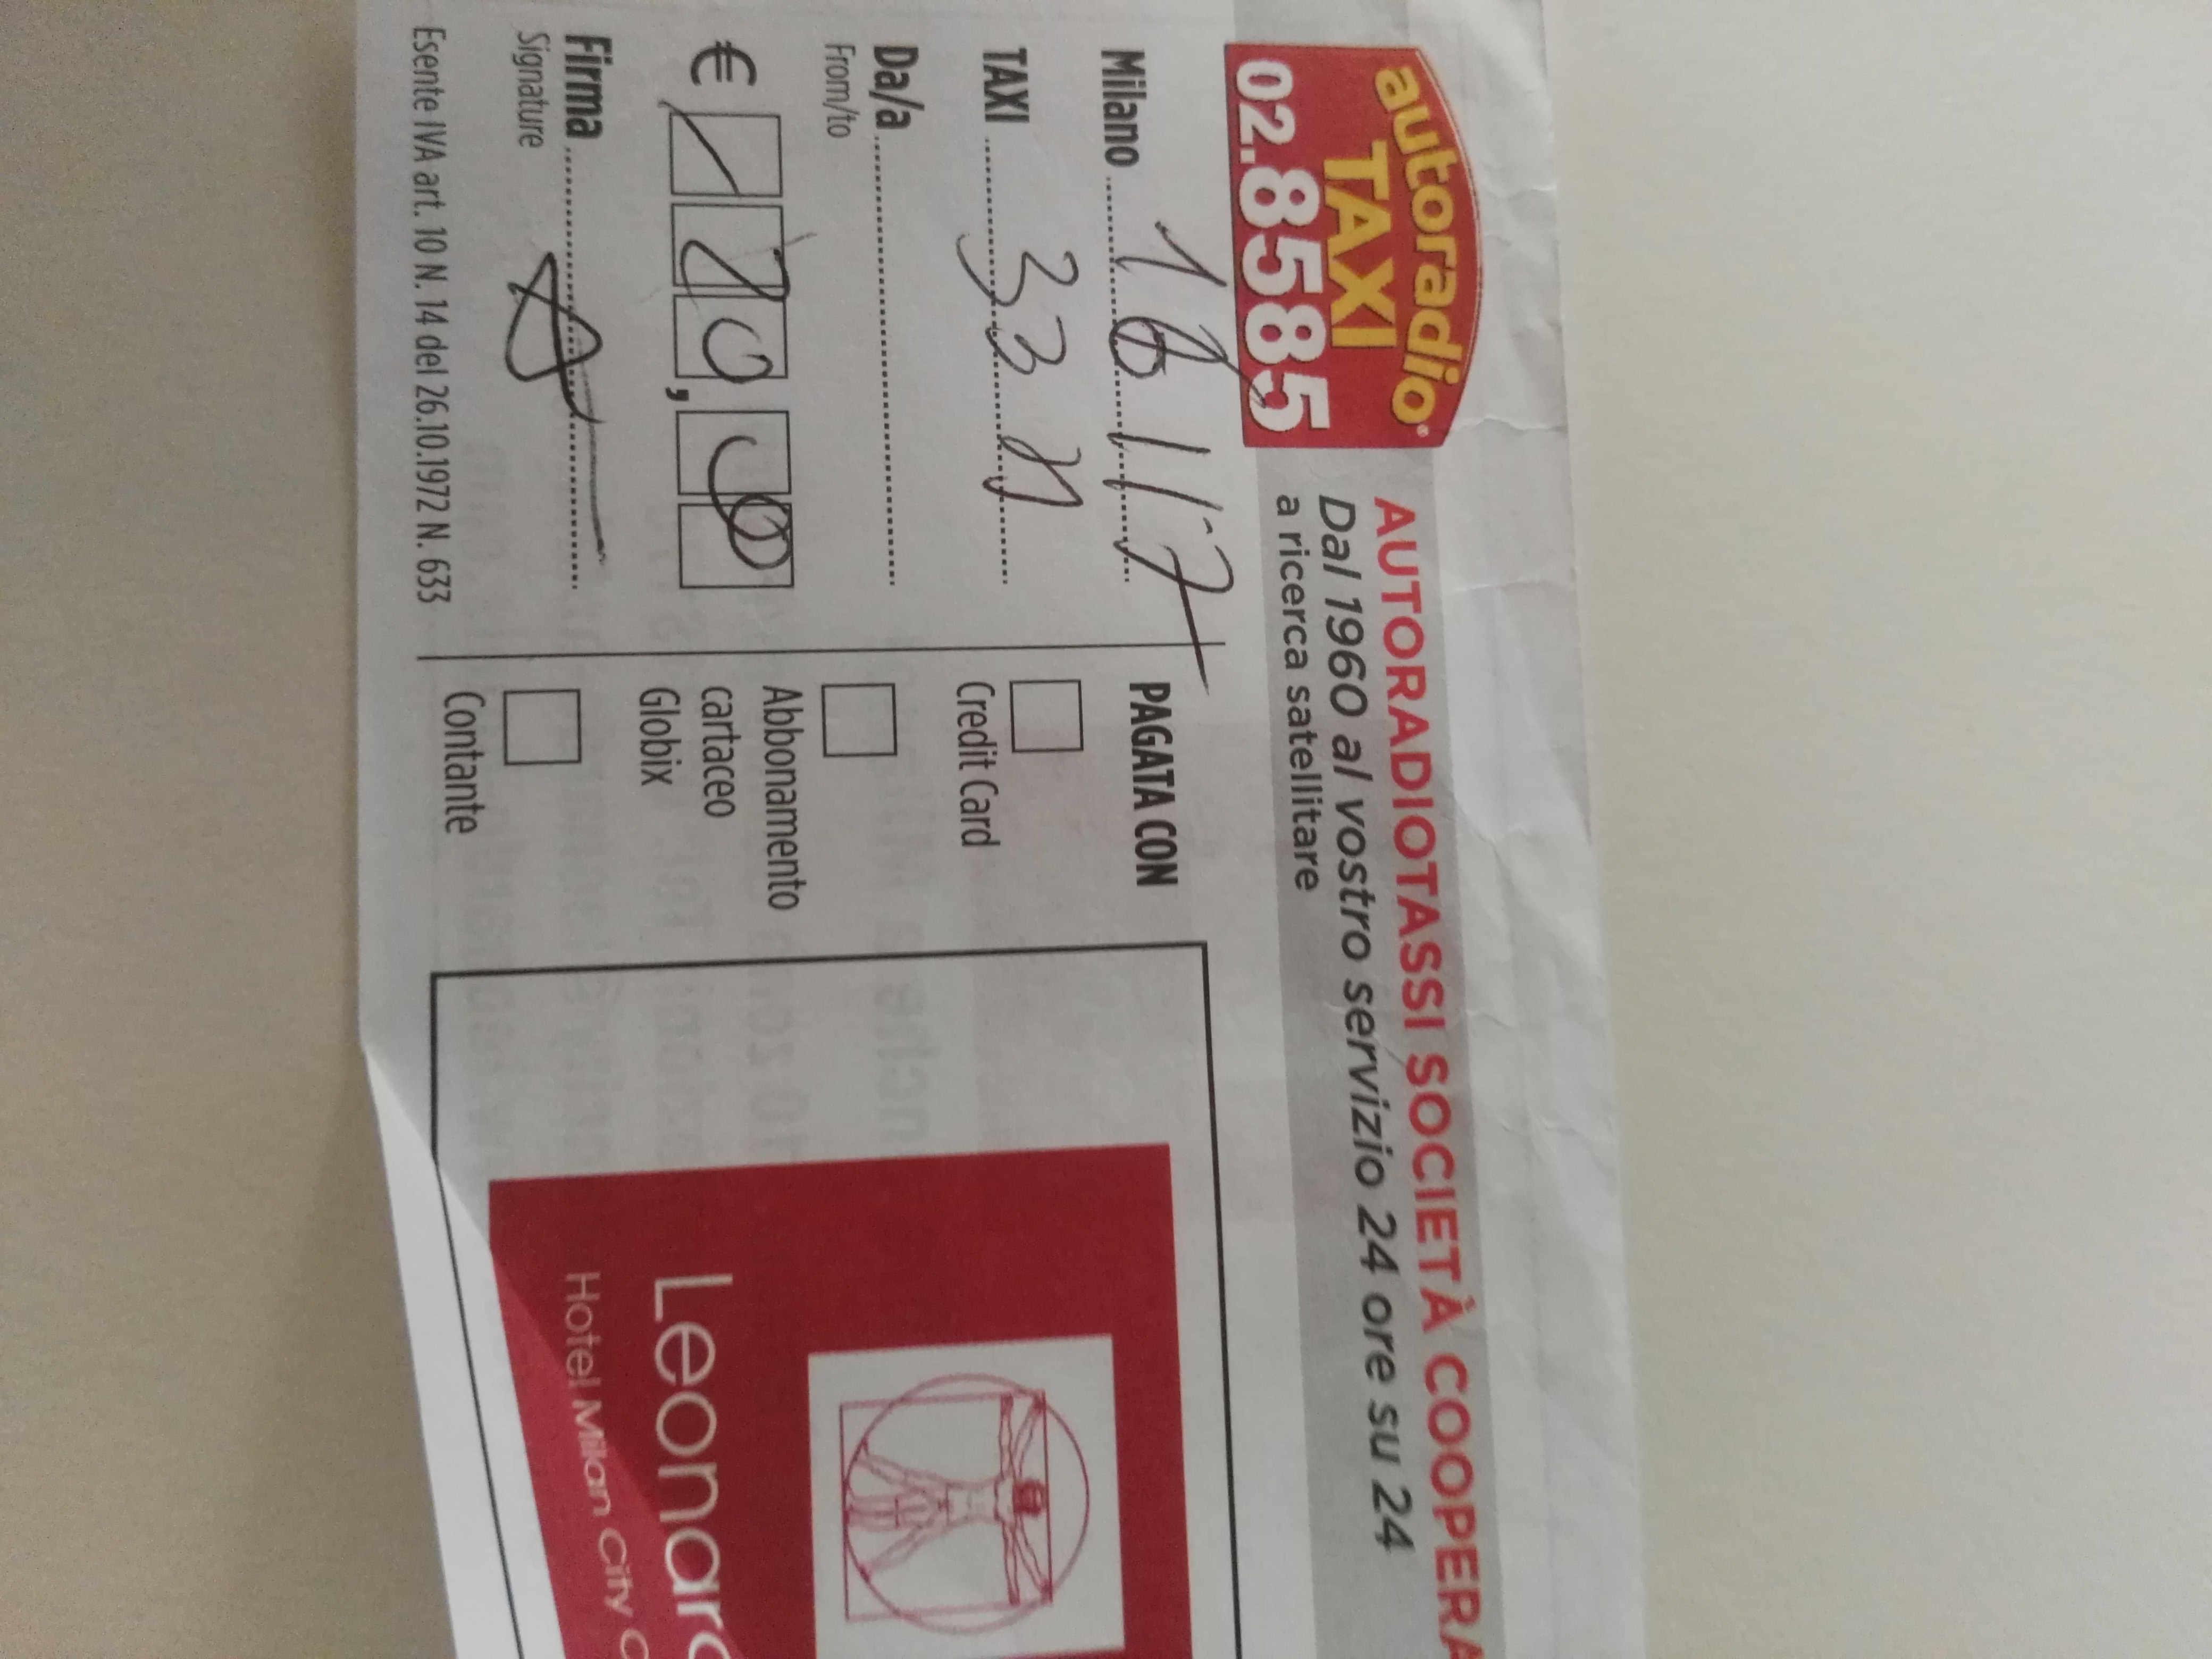 autoradio®
TAXI
02.8585
AUTORADIOTASSI SOCIETÀ COOPERA
Dal 1960 al vostro servizio 24 ore su 24
a ricerca satellitare
Milano
TAXI
Da/a
From/to
€ / 20,00
Firma
Signature
Esente IVA art. 10 N. 14 del 26.10.1972 N. 633
PAGATA CON
Credit Card
Abbonamento
cartaceo
Globix
Contante
Leonar
Hotel Milan City